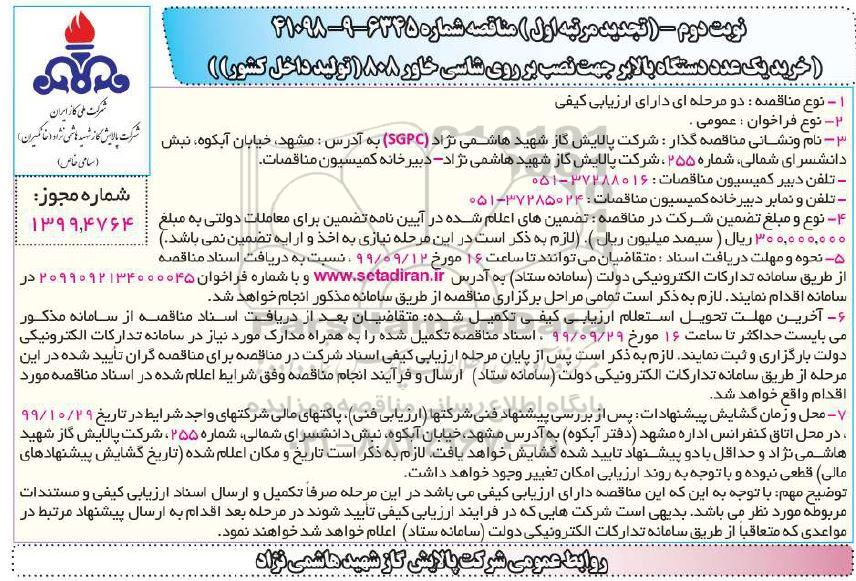 نوبت دوم - ( تجدید مرتبه اول ) مناقصه شماره ۶۳۴۵-۹-۴۱۰۹۸
( خرید یک عدد دستگاه بالابر جهت نصب بر روی شاسی خاور ۸۰۸ ( تولید داخل کشور ) )
شرکت ملی گاز ایران
شرکت پالایش گاز شهید هاشمی نژاد (خانگیران)
(سهامی خاص)
شماره مجوز:
۱۳۹۹,۴۷۶۴
۱- نوع مناقصه : دو مرحله ای دارای ارزیابی کیفی
۲- نوع فراخوان : عمومی .
۳- نام ونشانی مناقصه گذار : شرکت پالایش گاز شهید هاشمی نژاد (SGPC) به آدرس : مشهد، خیابان آبکوه، نبش
دانشسرای شمالی، شماره ۲۵۵ ، شرکت پالایش گاز شهید هاشمی نژاد- دبیرخانه کمیسیون مناقصات.
- تلفن دبیر کمیسیون مناقصات : ۳۷۲۸۸۰۱۶-۰۵۱
- تلفن و نمابر دبیرخانه کمیسیون مناقصات : ۳۷۲۸۵۰۲۴-۰۵۱
۴- نوع و مبلغ تضمین شرکت در مناقصه : تضمین های اعلام شده در آیین نامه تضمین برای معاملات دولتی به مبلغ
۳۰۰,۰۰۰,۰۰۰ ریال ( سیصد میلیون ریال ). (لازم به ذکر است در این مرحله نیازی به اخذ و ارایه تضمین نمی باشد.)
۵- نحوه و مهلت دریافت اسناد : متقاضیان می توانند تا ساعت ۱۶ مورخ ۹۹/۰۹/۱۲ ، نسبت به دریافت اسناد مناقصه
از طریق سامانه تدارکات الکترونیکی دولت (سامانه ستاد) به آدرس www.setadiran.ir و با شماره فراخوان ۲۰۹۹۰۹۲۱۳۴۰۰۰۰۴۵ در
سامانه اقدام نمایند. لازم به ذکر است تمامی مراحل برگزاری مناقصه از طریق سامانه مذکور انجام خواهد شد.
۶- آخرین مهلت تحویل استعلام ارزیابی کیفی تکمیل شده: متقاضیان بعد از دریافت اسناد مناقصه از سامانه مذکور
می بایست حداکثر تا ساعت ۱۶ مورخ ۹۹/۰۹/۲۹ ، اسناد مناقصه تکمیل شده را به همراه مدارک مورد نیاز در سامانه تدارکات الکترونیکی
دولت بارگزاری و ثبت نمایند. لازم به ذکر است پس از پایان مرحله ارزیابی کیفی اسناد شرکت در مناقصه برای مناقصه گران تأیید شده در این
مرحله از طریق سامانه تدارکات الکترونیکی دولت (سامانه ستاد) ارسال و فرآیند انجام مناقصه وفق شرایط اعلام شده در اسناد مناقصه مورد
اقدام واقع خواهد شد.
۷- محل و زمان گشایش پیشنهادات: پس از بررسی پیشنهاد فنی شرکتها (ارزیابی فنی)، پاکتهای مالی شرکتهای واجد شرایط در تاریخ ۹۹/۱۰/۲۹
، در محل اتاق کنفرانس اداره مشهد (دفتر آبکوه) به آدرس مشهد، خیابان آبکوه، نبش دانشسرای شمالی، شماره ۲۵۵ ، شرکت پالایش گاز شهید
هاشمی نژاد و حداقل با دو پیشنهاد تایید شده گشایش خواهد یافت. لازم به ذکر است تاریخ و مکان اعلام شده (تاریخ گشایش پیشنهادهای
مالی) قطعی نبوده و با توجه به روند ارزیابی امکان تغییر وجود خواهد داشت.
توضیح مهم: با توجه به این که این مناقصه دارای ارزیابی کیفی می باشد در این مرحله صرفاً تکمیل و ارسال اسناد ارزیابی کیفی و مستندات
مربوطه مورد نظر می باشد. بدیهی است شرکت هایی که در فرایند ارزیابی کیفی تأیید شوند در مرحله بعد اقدام به ارسال پیشنهاد مرتبط در
مواعدی که متعاقباً از طریق سامانه تدارکات الکترونیکی دولت (سامانه ستاد) اعلام خواهد شد خواهند نمود.
روابط عمومی شرکت پالایش گاز شهید هاشمی نژاد
ParsNamadData
پایگاه اطلاع رسانی مناقصه و مزایده